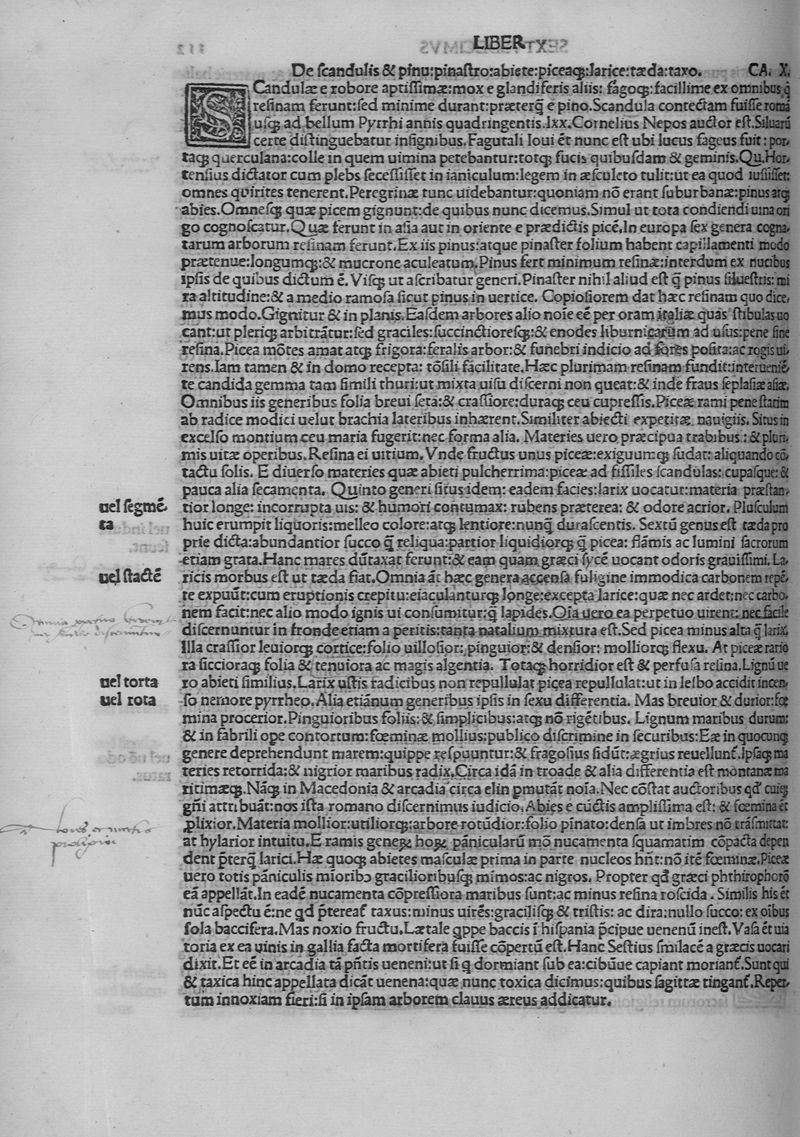 LIBER
De ſcandulis & pinu:pinaſtro:abiete:piceaq;:larice:tæda:taxo. CA. X.
SCandulæ e robore aptiſſimæ:mox e glandiferis aliis: fagoq;:facillime ex omnibus q̃
reſinam ferunt:ſed minime durant:præterq̃ e pino.Scandula contectam fuiſſe romã
uſq; ad bellum Pyrrhi annis quadringentis.lxx.Cornelius Nepos auctor eſt.Siluarũ
certe diſtinguebatur inſignibus.Fagutali Ioui ẽt nunc eſt ubi lucus fageus fuit: por,
taq; querculana:colle in quem uimina petebantur:totq; fucis quibuſdam & geminis.Qu.Hor,
tenſius dictator cum plebs ſeceſſiſſet in ianiculum:legem in æſculeto tulit:ut ea quod iuſſiſſet:
omnes quirites tenerent.Peregrinæ tunc uidebantur:quoniam nõ erant ſuburbanæ:pinus atq;
abies.Omneſq; quæ picem gignunt:de quibus nunc dicemus.Simul ut tota condiendi uina ori
go cognoſcatur.Quæ ferunt in aſia aut in oriente e prædictis picẽ.In europa ſex genera cogna,
tarum arborum reſinam ferunt.Ex iis pinus:atque pinaſter folium habent capillamenti modo
prætenue:longumq;:& mucrone aculeatum.Pinus fert minimum reſinæ:interdum ex nucibus
ipſis de quibus dictum ẽ.Viſq; ut aſcribatur generi.Pinaſter nihil aliud eſt q̃ pinus ſilueſtris: mi
ra altitudine:& a medio ramoſa ſicut pinus in uertice. Copioſiorem dat hæc reſinam quo dice,
mus modo.Gignitur & in planis.Eaſdem arbores alio noie eẽ per oram italiæ quas ſtibulas uo
cant:ut pleriq; arbitrãtur:ſed graciles:ſuccinctioreſq;:& enodes liburnicarum ad uſus:pene ſine
reſina.Picea mõtes amat atq; frigora:feralis arbor:& funebri indicio ad fores poſita:ac rogis ui,
rens.Iam tamen & in domo recepta: tõſili facilitate.Hæc plurimam reſinam fundit:interueniẽ,
te candida gemma tam ſimili thuri:ut mixta uiſu diſcerni non queat:& inde fraus ſeplaſiæ aſiæ.
Omnibus iis generibus folia breui ſeta:& craſſiore:duraq; ceu cupreſſis.Piceæ rami pene ſtatim
ab radice modici uelut brachia lateribus inhærent.Similiter abiecti expetitæ nauigiis. Situs in
excelſo montium ceu maria fugerit:nec forma alia. Materies uero præcipua trabibus : & pluri,
mis uitæ operibus.Reſina ei uitium.Vnde fructus unus piceæ:exiguumq; ſudat: aliquando cõ,
tactu ſolis. E diuerſo materies quæ abieti pulcherrima:piceæ ad fiſſiles ſcandulas: cupaſque: &
pauca alia ſecamenta. Quinto generi ſitus idem: eadem facies:larix uocatur:materia præſtan,
uel ſegmẽ,
ta
tior longe: incorrupta uis: & humori contumax: rubens præterea: & odore acrior. Pluſculum
huic erumpit liquoris:melleo colore:atq; lentiore:nunq̃ duraſcentis. Sextũ genus eſt tæda pro
prie dicta:abundantior ſucco q̃ reliqua:partior liquidiorq; q̃ picea: flãmis ac lumini ſacrorum
etiam grata.Hanc mares dũtaxat ferunt:& eam quam græci ſycẽ uocant odoris grauiſſimi. La,
uel ſtactẽ
ricis morbus eſt ut tæda fiat.Omnia ãt hæc genera accenſa fuligine immodica carbonem repẽ,
te expuũt:cum eruptionis crepitu:eiaculanturq; longe:excepta larice:quæ nec ardet:nec carbo,
nem facit:nec alio modo ignis ui conſumitur:q̃ lapides.Oĩa uero ea perpetuo uirent: nec facile
diſcernuntur in fronde etiam a peritis:tanta natalium mixtura eſt.Sed picea minus alta q̃ larix.
Illa craſſior leuiorq; cortice:folio uilloſior: pinguior:& denſior: molliorq; flexu. At piceæ rario
ra ſiccioraq; folia & tenuiora ac magis algentia. Totaq; horridior eſt & perfuſa reſina.Lignũ ue
uel torta
uel rota
ro abieti ſimilius.Larix uſtis radicibus non repullulat picea repullulat:ut in leſbo accidit incen,
ſo nemore pyrrheo.Alia etiãnum generibus ipſis in ſexu differentia. Mas breuior & durior:fœ
mina procerior.Pinguioribus foliis:& ſimplicibus:atq; nõ rigẽtibus. Lignum maribus durum:
& in fabrili ope contortum:fœminæ mollius:publico diſcrimine in ſecuribus:Eæ in quocunq;
genere deprehendunt marem:quippe reſpuuntur:& fragoſius ſidũt:ægrius reuellunt̃.Ipſaq; ma
teries retorrida:& nigrior maribus radix.Circa idã in troade & alia differentia eſt montanæ ma
ritimæq;.Nãq; in Macedonia & arcadia circa elin pmutãt noĩa.Nec cõſtat auctoribus qd̃ cuiq;
gñi attribuãt:nos iſta romano diſcernimus iudicio.Abies e cũctis ampliſſima eſt: & fœmina ẽt
plixior. Materia mollior:utiliorq;:arbore rotũdior:folio pĩnato:denſa ut imbres nõ trãſmittat:
at hylarior intuitu.E ramis geneꝝ hoꝝ pãnicularũ mõ nucamenta ſquamatim cõpacta depen
dent p̃terq̃ larici.Hæ quoq; abietes maſculæ prima in parte nucleos hñt:nõ itẽ fœminæ.Piceæ
uero totis pãniculis mioribꝰ gracilioribuſq; mĩmos:ac nigros. Propter qd̃ græci phthirophorõ
eã appellãt.In eadẽ nucamenta cõpreſſiora maribus ſunt:ac minus reſina roſcida . Similis his ẽt
nũc aſpectu ẽ:ne qd̃ p̃tereat̃ taxus:minus uirẽs:graciliſq; & triſtis: ac dira:nullo ſucco: ex oĩbus
ſola baccifera.Mas noxio fructu.Lætale qppe baccis ĩ hiſpania p̃cipue uenenũ ineſt.Vaſa ẽt uia
toria ex ea uinis in gallia facta mortifera fuiſſe cõpertũ eſt.Hanc Seſtius ſmilacẽ a græcis uocari
dixit.Et eẽ in arcadia tã p̃ntis ueneni:ut ſi q dormiant ſub ea:cibũue capiant moriant̃.Sunt qui
& taxica hinc appellata dicãt uenena:quæ nunc toxica dicimus:quibus ſagittæ tingant̃.Reper,
tum innoxiam fieri:ſi in ipſam arborem clauus æreus addicatur.